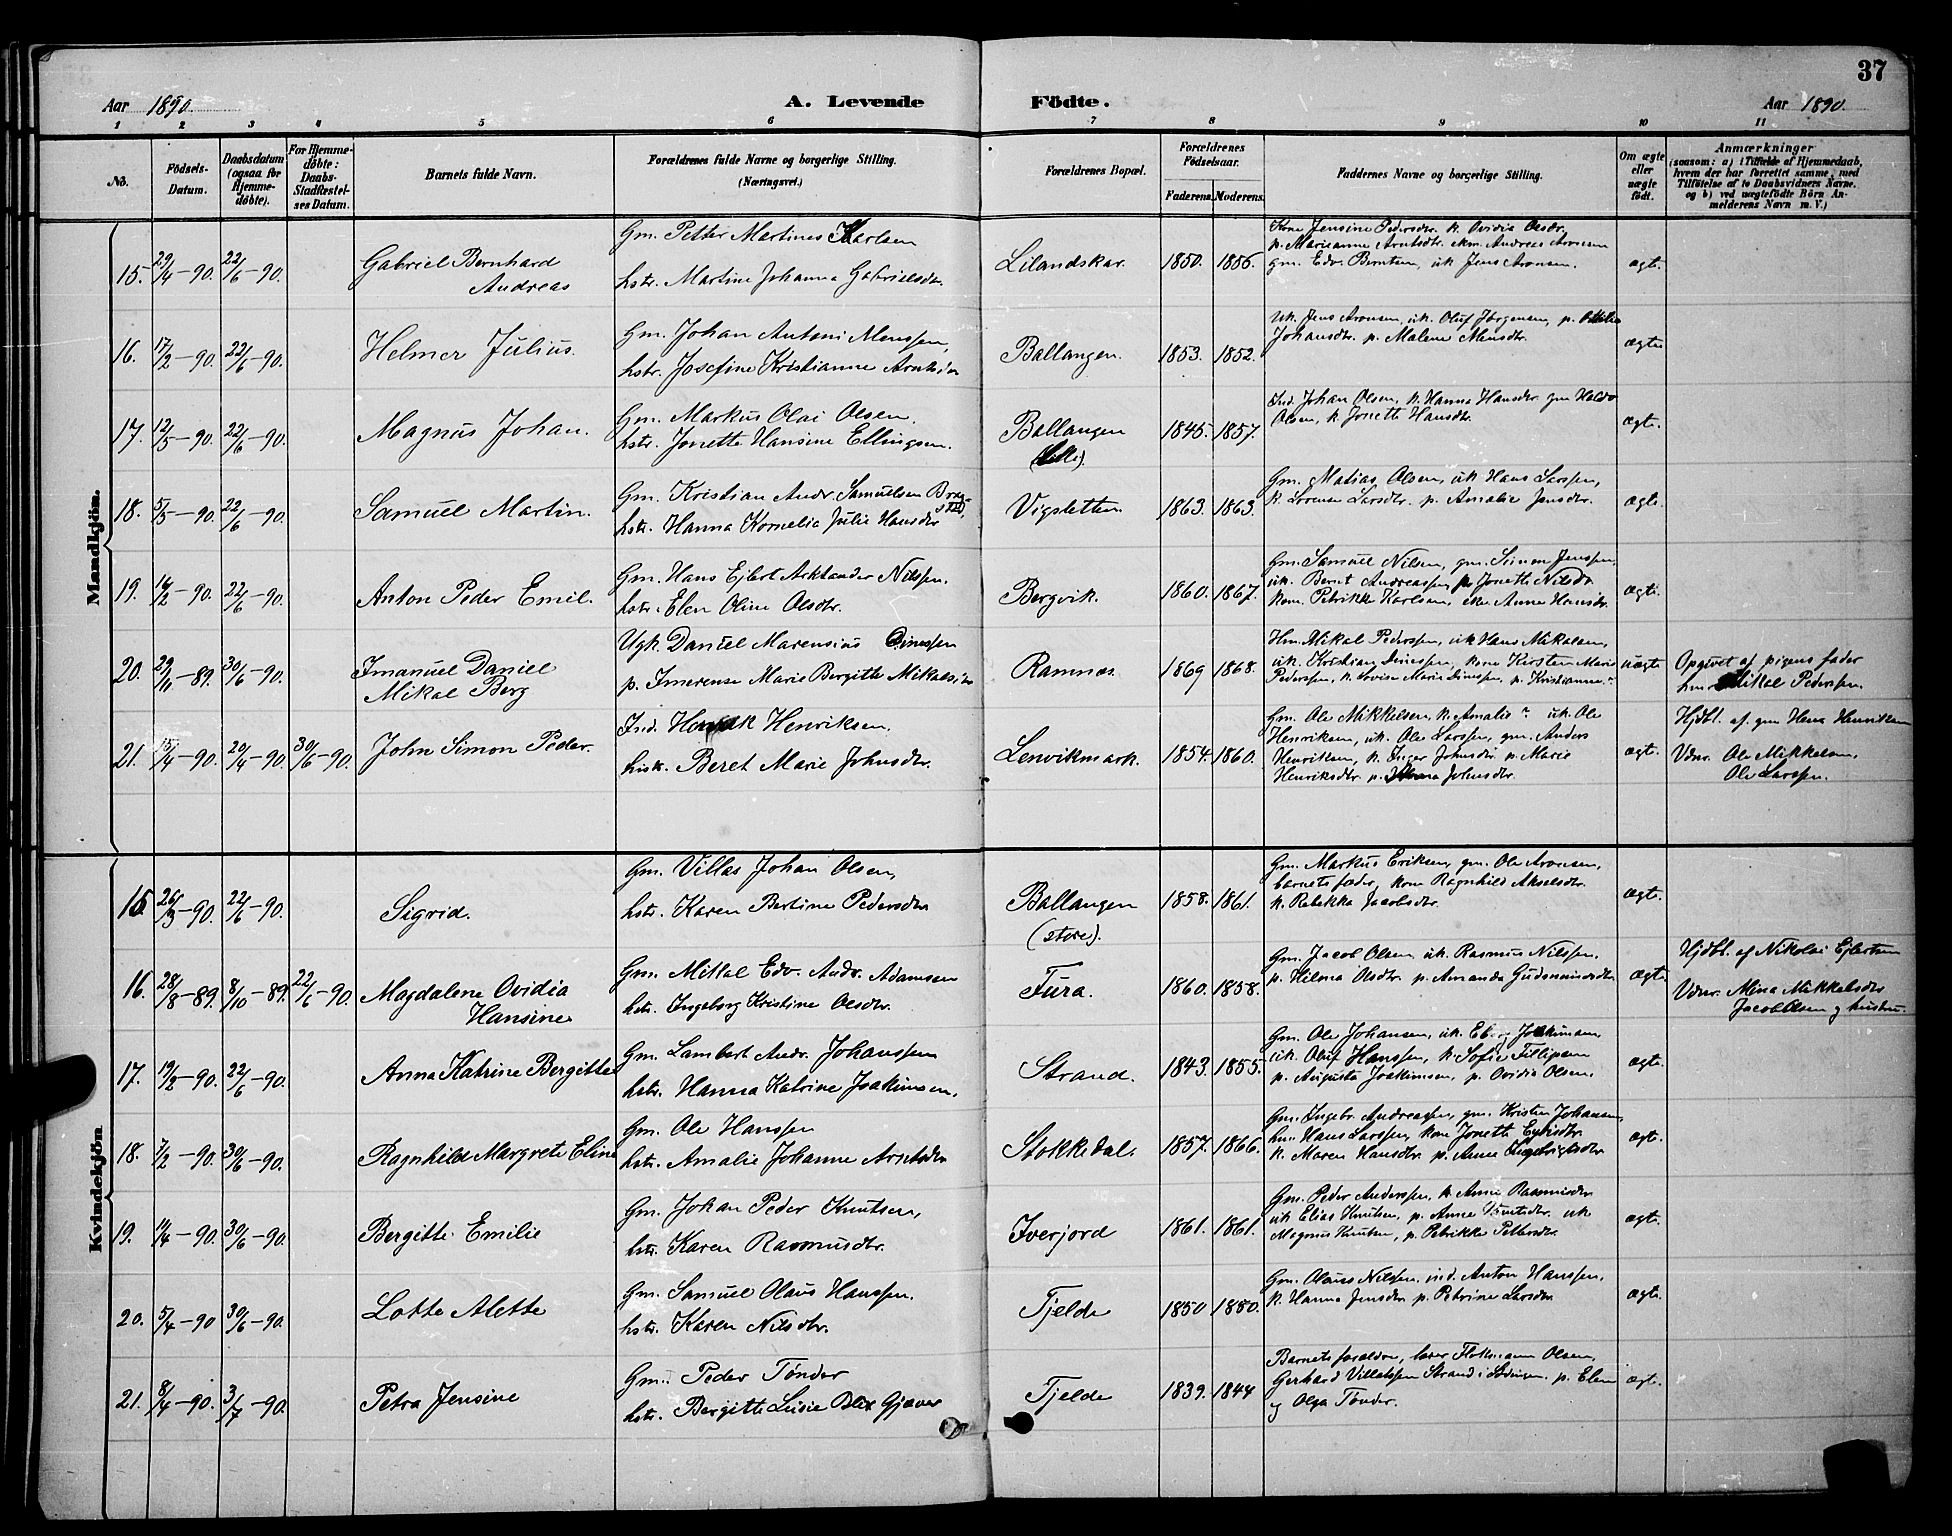 37
Aar 1890.
A. Levende
Födte.
Aar 1890.
1 2 3 4 5 6 7 8 9 10 11
No.
Födsels-
Datum.
Daabsdatum
(ogsaa for
Hjemme-
döbte).
For Hjemme-
döbte:
Daabs-
Stadfæstel-
ses Datum.
Barnets fulde Navn.
Forældrenes fulde Navne og borgerlige Stilling.
(Næringsvei.)
Forældrenes Bopæl.
Forældrenes
Födselsaar.
Faderens. Moderens.
Faddernes Navne og borgerlige Stilling.
Om ægte
eller
uægte
födt.
Anmærkninger
(saasom: a) i Tilfælde af Hjemmedaab,
hvem der har forrettet samme, med
Tilföielse af to Daabsvidners Navne.
og b) ved uægtefödte Börn An-
melderens Navn m. V.)
Mandkjön.
15. 29/4-90. 22/6-90.
Gabriel Bernhard
Andreas
Gm. Petter Martines Karlsen
hstr. Martine Johanna Gabrielsdtr.
Lilandskar. 1850. 1856.
Kone Jensine Pedersdtr. k. Ovidia Olsdtr.
p. Marianne Arntsdtr. ekm. Andreas Aronsen
gm. Edv. Berntsen, uk Jens Aronsen.
ægte.
16. 17/2-90. 22/6-90.
Helmer Julius.
Gm. Johan Antoni Monssen,
hstr. Josefine Kristianne Arntsdtr
Ballangen. 1853. 1852.
Uk. Jens Aronsen, uk. Oluf Jörgensen, p. Otilie
Johansdtr. p. Malene Monsdtr.
ægte
17. 12/5-90. 22/6-90.
Magnus Johan.
Gm. Markus Olai Olsen.
hstr. Jonette Hansine Ellingsen.
Ballangen
(Lille).
1845. 1857.
Ind. Johan Olsen, k. Hanna Hansdtr. gm Haldo
Olsen, k. Jonette Hansdtr.
ægte.
18. 5/5-90. 22/6-90.
Samuel Martin.
Gm. Kristian Andr. Samuelsen
hstr. Hanna Kornelia Julie Hansdtr
Vigsletten 1863. 1863.
Gm. Matias Olsen, uk Hans Larssen,
k. Lorense Larsdtr. p. Amalie Jensdtr.
ægte.
19. 16/2-90. 22/6-90.
Anton Peder Emil.
Gm. Hans Ejlert Arktander Nilssen.
hstr. Elen Oline Olsdtr.
Bergvik. 1860. 1867.
Gm. Samuel Nilsen, gm. Simon Jenssen,
uk. Bernt Andreassen p. Jonette Nilsdtr
kone Petrikke Karlsen, eke Anne Hansdtr.
ægte.
20. 29/11-89. 30/6-90.
Imanuel Daniel
Mikal Berg
Ugk. Daniel Marensius Dinessen
p. Imerense Marie Bergitte Mikalsdtr
Ramnas. 1869 1868.
Hm. Mikal Pederssen, uk Hans Mikalsen,
uk. Kristian Dinessen, kone Kirsten Marie
Pederssen, k. Lovise Marie Dinessen, p. Kristianne "
uægte
Opgivet af pigens fader
hm. Mikal Pederssen.
21. 15/4-90. 20/4-90. 30/6-90.
John Simon Peder.
Ind. Henrik Henriksen.
hstr. Beret Marie Johnsdtr.
Lenvikmark. 1854. 1860.
Gm. Ole Mikkelsen, k. Amalie " uk. Ole
Henriksen, uk. Ole Larssen, gm. Anders
Henriksen, k. Inger Johnsdtr p. Marie
Henriksdtr. p. Anna Johnsdtr.
ægte.
Hjdbt. af. gm Hans Henriksen
Vdnr. Ole Mikkelsen,
Ole Larssen.
Kvindekjön
15 26/3-90. 22/6-90.
Sigrid.
Gm. Villas Johan Olsen,
hstr. Karen Bertine Pedersdtr
Ballangen
(store).
1858. 1861.
Gm. Markus Eriksen, gm. Ole Aronsen,
barnets fader, kone Ragnhild Akselsdtr.
k. Rebekka Jacobsdtr.
ægte.
16. 28/8-89. 8/10-89. 22/6-90.
Magdalene Ovidia
Hansine
Gm. Mikkal Edv. Andr. Adamsen
hstr. Ingeborg Kristine Olsdtr.
Fura. 1860. 1858.
Gm. Jacob Olsen uk. Rasmus Nilssen.
p. Hilma Olsdtr p. Amanda Gudmundsdtr
ægte
Hjdbt. af Nikolai Ejlertsen
Vdnr. Mina Mikkelsdtr
Jacob Olsen og hustru.
17. 19/2-90. 22/6-90.
Anna Katrine Bergitte
Gm. Lambert Andr. Johanssen
hstr. Hanna Katrine Joakimsen.
Strand. 1843. 1855.
Gm. Ole Johansen, uk. Joakimsen,
uk. Oluf Hanssen, k. Sofie Fillipsen
p. Augusta Joakimsen, p. Ovidia Olsen.
ægte.
18. 7/2-90. 30/6-90.
Ragnhild Margrete Eline
Gm. Ole Hanssen
hstr. Amalie Johanne Arntsdtr
Stokkedal. 1857. 1866.
Gm. Ingebr. Andreassen, gm. Kristen Johansen,
hm. Hans Larssen, kone Jonette
k. Maren Hansdtr p. Anne Ingebrigtsdtr
ægte.
19. 14/4-90. 30/6-90.
Bergitte Emilie
Gm. Johan Peder Knutsen,
hstr. Karen Rasmusdtr.
Iverjord 1861. 1861.
Gm. Peder Anderssen, k. Anne Rasmusdtr
uk Elias Knutsen, p. Anne Knutsdtr. uk
Magnus Knutsen, p. Petrikke Pettersdtr.
ægte.
20. 5/4-90 30/6-90.
Lotte Alette
Gm. Samuel Olaus Hanssen.
hstr. Karen Nilsdtr.
Tjelde 1850 1850.
Gm. Olaus Nilssen. ind. Anton Hanssen.
k. Hanna Jensdtr p. Petrine Larsdtr
ægte.
21. 8/4-90. 3/7-90.
Petra Jensine
Gm. Peder Tönder
hstr. Bergitte Lusie Blix Gjæver
Tjelde 1839. 1844
Barnets foraldre, lærer Flotmann Olsen,
Gerhard Villatssen Strand i Lödingen. p. Elen
og Olga Tönder.
ægte.